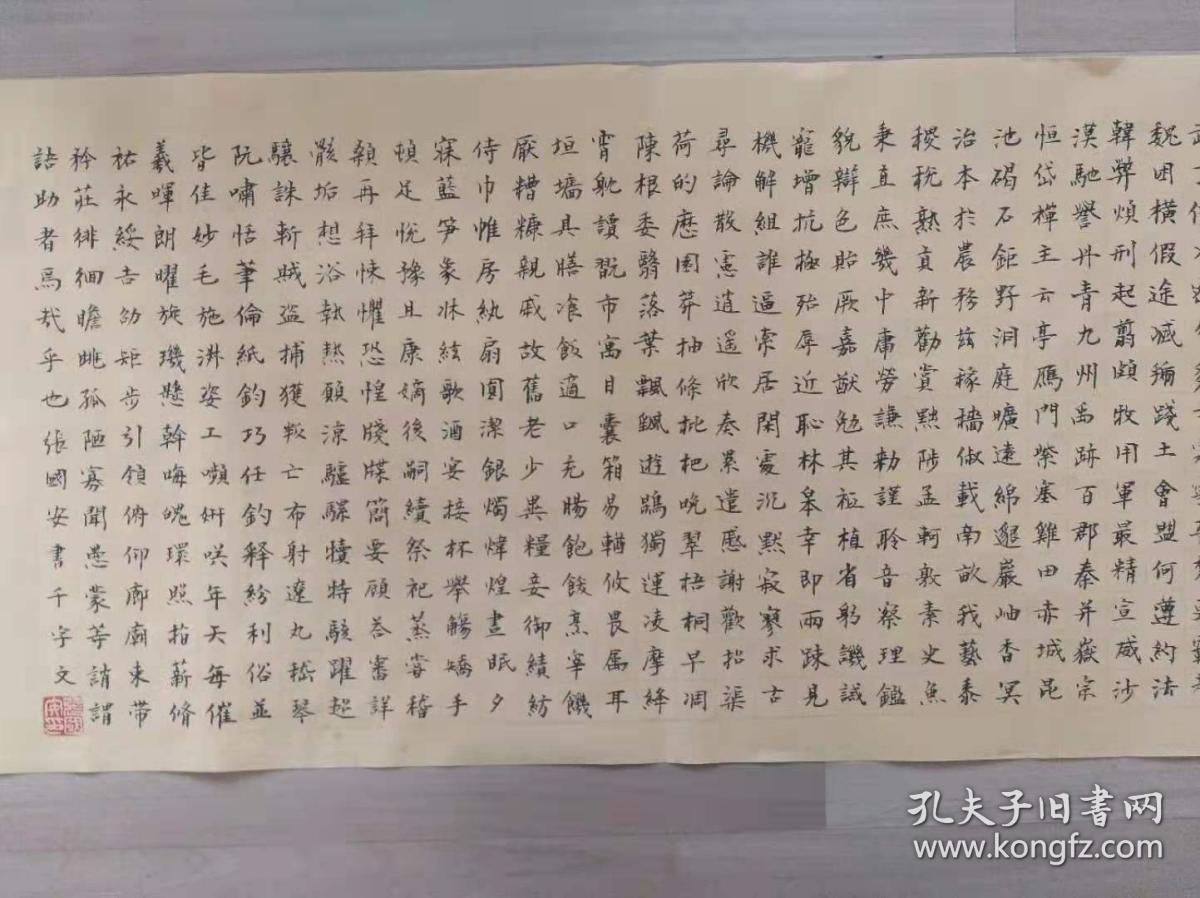 魏困橫假途滅虢踐土會盟何遵約法
韓弊煩刑起翦頗牧用軍最精宣威沙
漠馳譽丹青九州禹跡百郡秦并嶽宗
恒岱禪主云亭鴈門紫塞雞田赤城昆
池碣石鉅野洞庭曠遠綿邈巖岫杳冥
治本於農務茲稼穡俶載南畝我藝黍
稷稅熟貢新勸賞黜陟孟軻敦素史魚
秉直庶幾中庸勞謙勅謹聆音察理鑑
貌辯色貽厥嘉猷勉其祗植省躬譏誡
寵增抗極殆辱近恥林皋幸即兩疎見
機解組誰逼索居閑處沉默寂寥求古
尋論散慮逍遙欣奏累遣慼謝歡招渠
荷的歷園莽抽條枇杷晚翠梧桐早凋
陳根委翳落葉飄颻遊鵾獨運凌摩絳
霄耽讀翫市寓目囊箱易輶攸畏属耳
垣墻具膳飡飯適口充腸飽飫烹宰饑
厭糟糠親戚故舊老少異糧妾御績紡
侍巾帷房紈扇圓潔銀燭煒煌晝眠夕
寐藍笋象床絃歌酒宴接杯舉觴矯手
頓足悅豫且康嫡後嗣續祭祀蒸嘗稽
顙再拜悚懼恐惶牋牒簡要顧答審詳
骸垢想浴執熱願涼驢騾犢特駭躍超
驤誅斬賊盜捕獲叛亡布射遼丸嵇琴
阮嘯恬筆倫紙鈞巧任釣釋紛利俗並
皆佳妙毛施淑姿工嚬妍咲年矢每催
羲暉朗曜旋璣懸斡晦魄環照指薪脩
祐永綏吉劭矩步引領俯仰廊廟束帶
矜莊徘徊瞻眺孤陋寡聞愚蒙等誚謂
語助者焉哉乎也張國安書千字文
孔夫子旧书网
www.kongfz.com